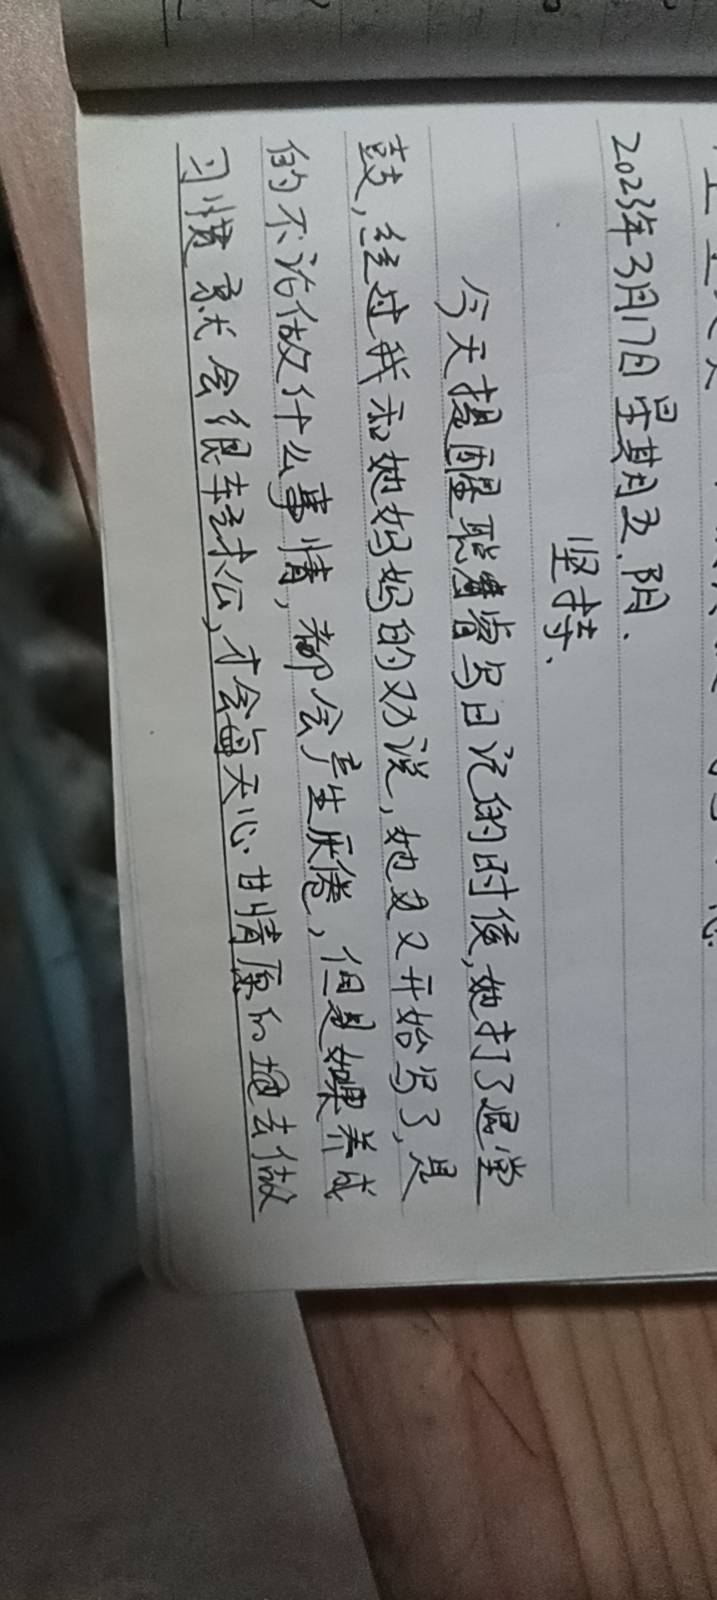 2023年3月17日星期五.阴.
坚持.
今天提醒聪睿写日记的时侯,她打了退堂
鼓,经过我和她妈妈的劝说,她又开始写了,是
的不论做什么事情,都会产生厌倦,但是如果养成
习惯就会很轻松,才会每天心甘情愿的地去做